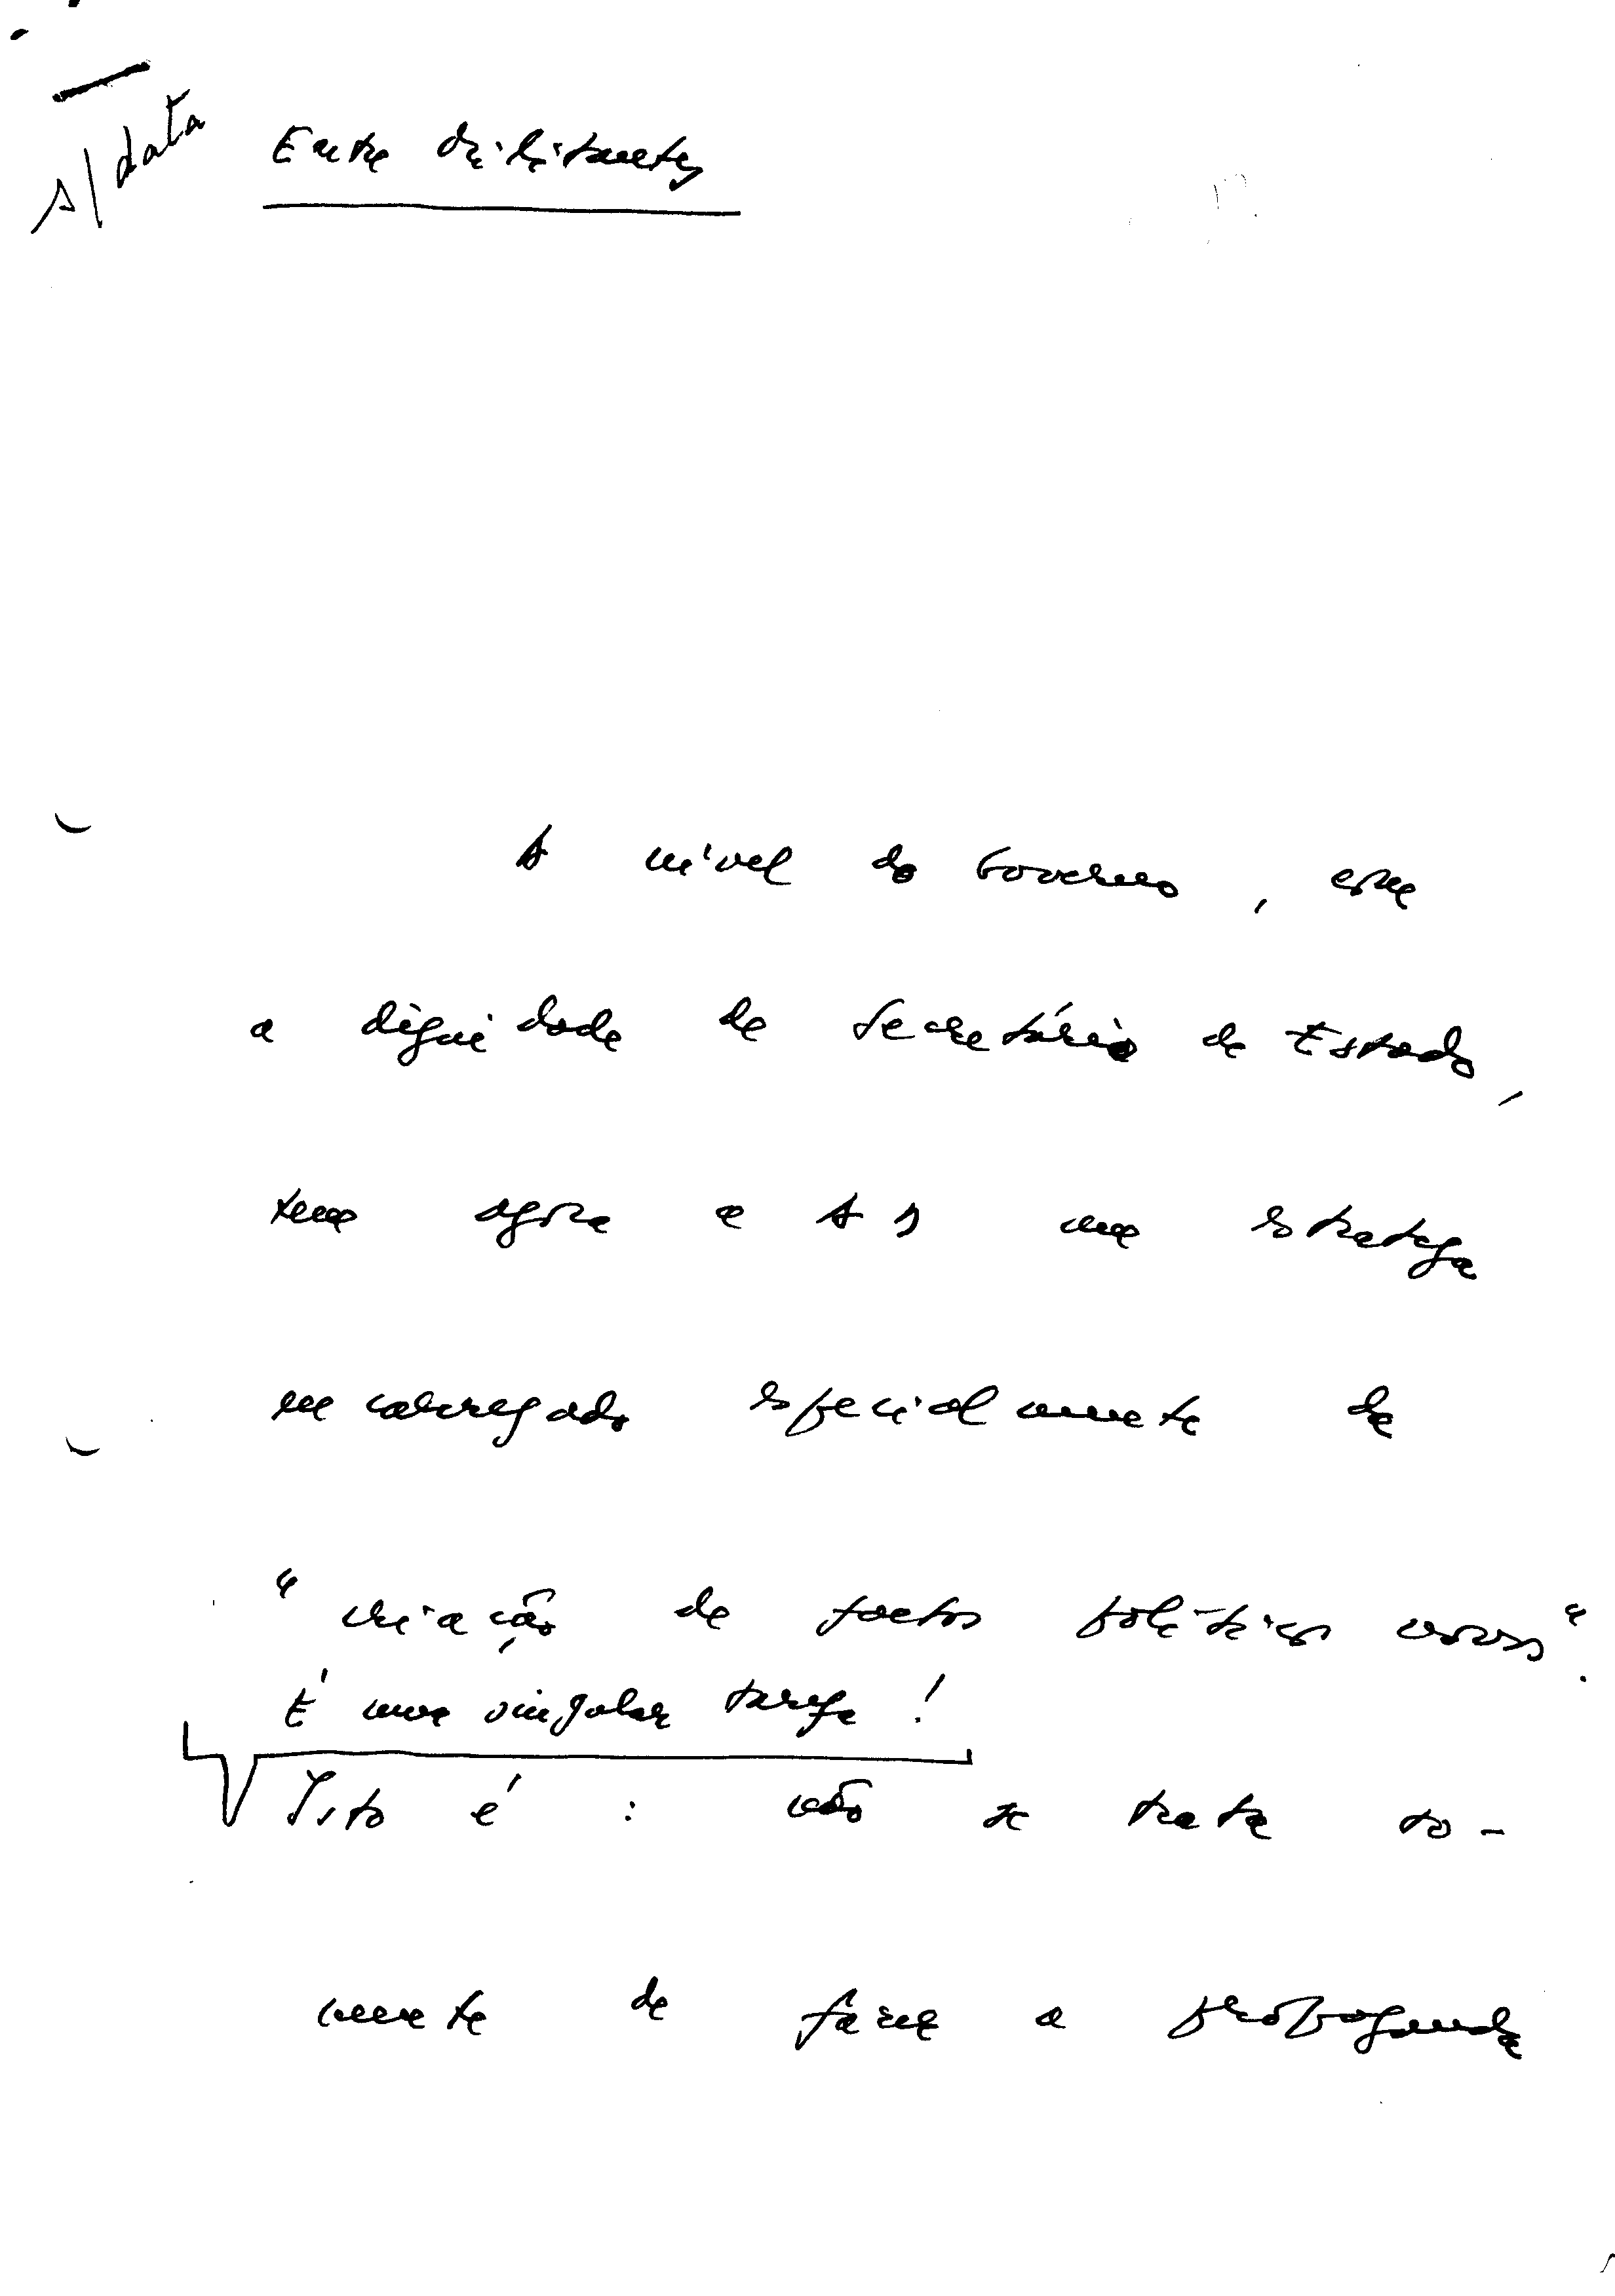 s/data
Entre
A nível do Governo, com
a dignidade de Secretário de Estado,
tem agora a AD um estratega
encarregado especialmente de
"criação de factos políticos novos".
É uma singular tarefa!
Isto é: não se trata so-
mente de fazer a propaganda